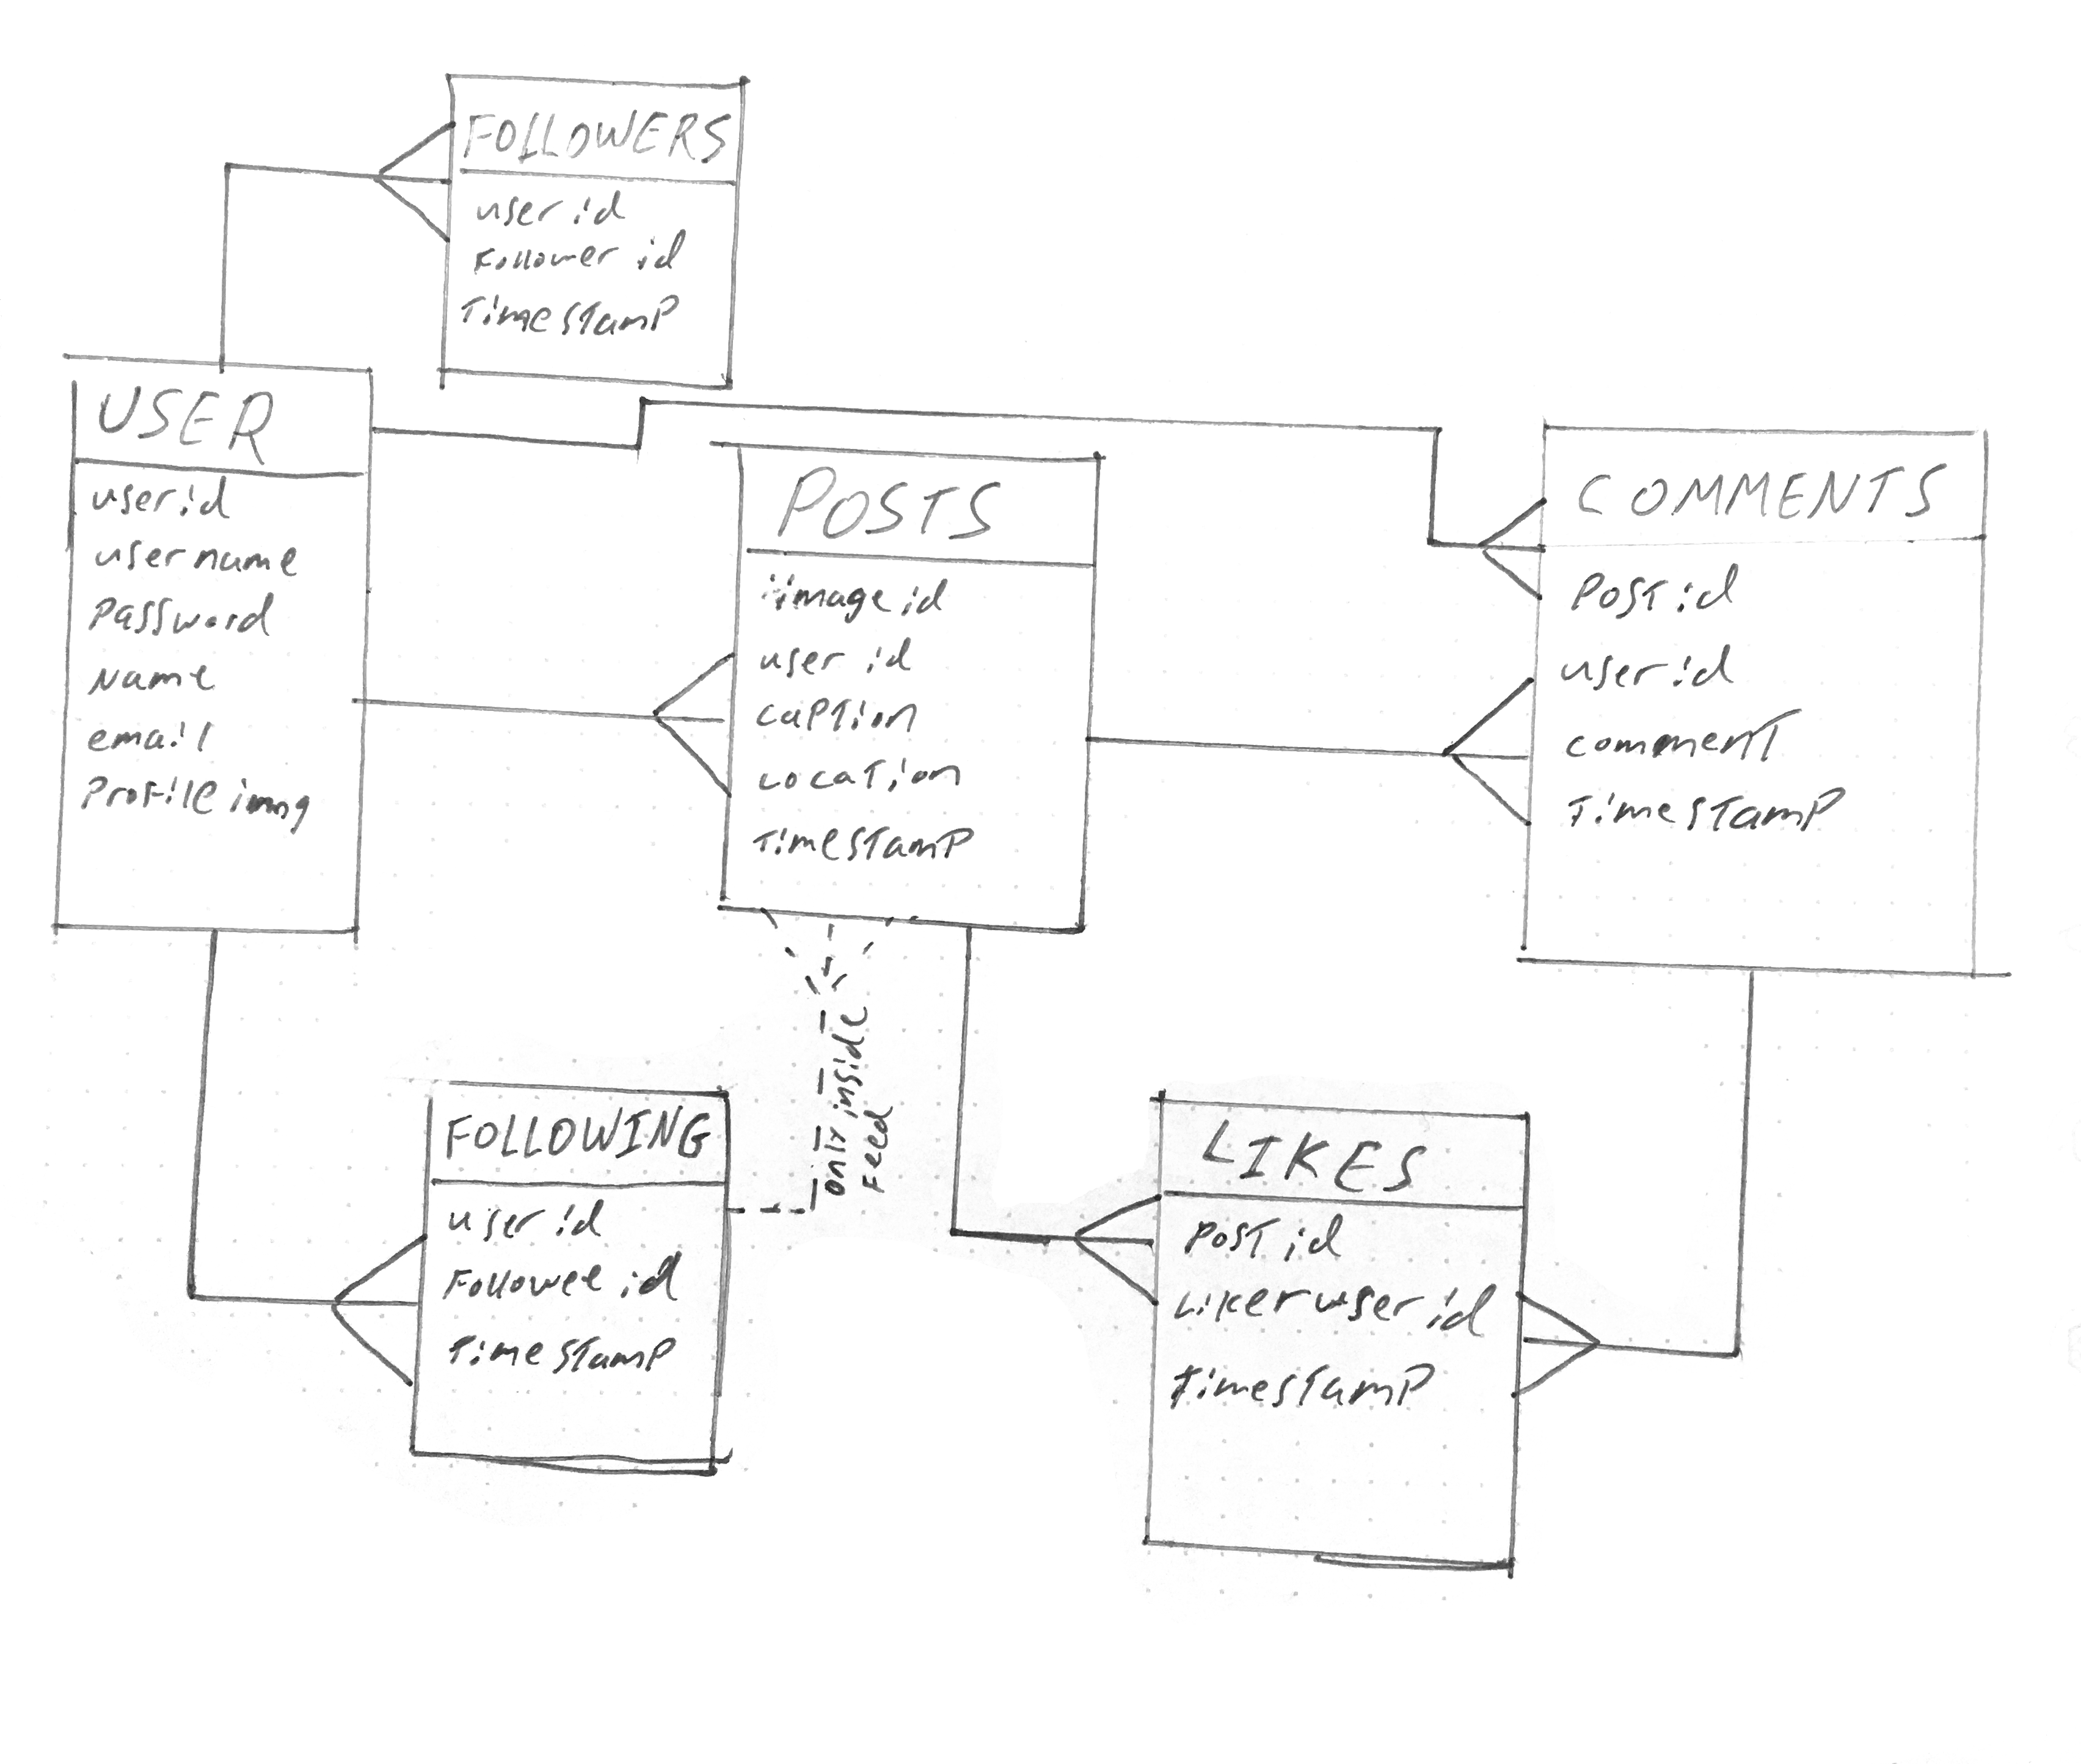 FOLLOWERS
user id
Follower id
Timestamp
USER
user id
username
Password
Name
email
Profile img
POSTS
image id
user id
caption
Location
Timestamp
COMMENTS
Post id
user id
comment
Timestamp
only inside
Feed
FOLLOWING
user id
Followee id
Timestamp
LIKES
Post id
Liker user id
Timestamp